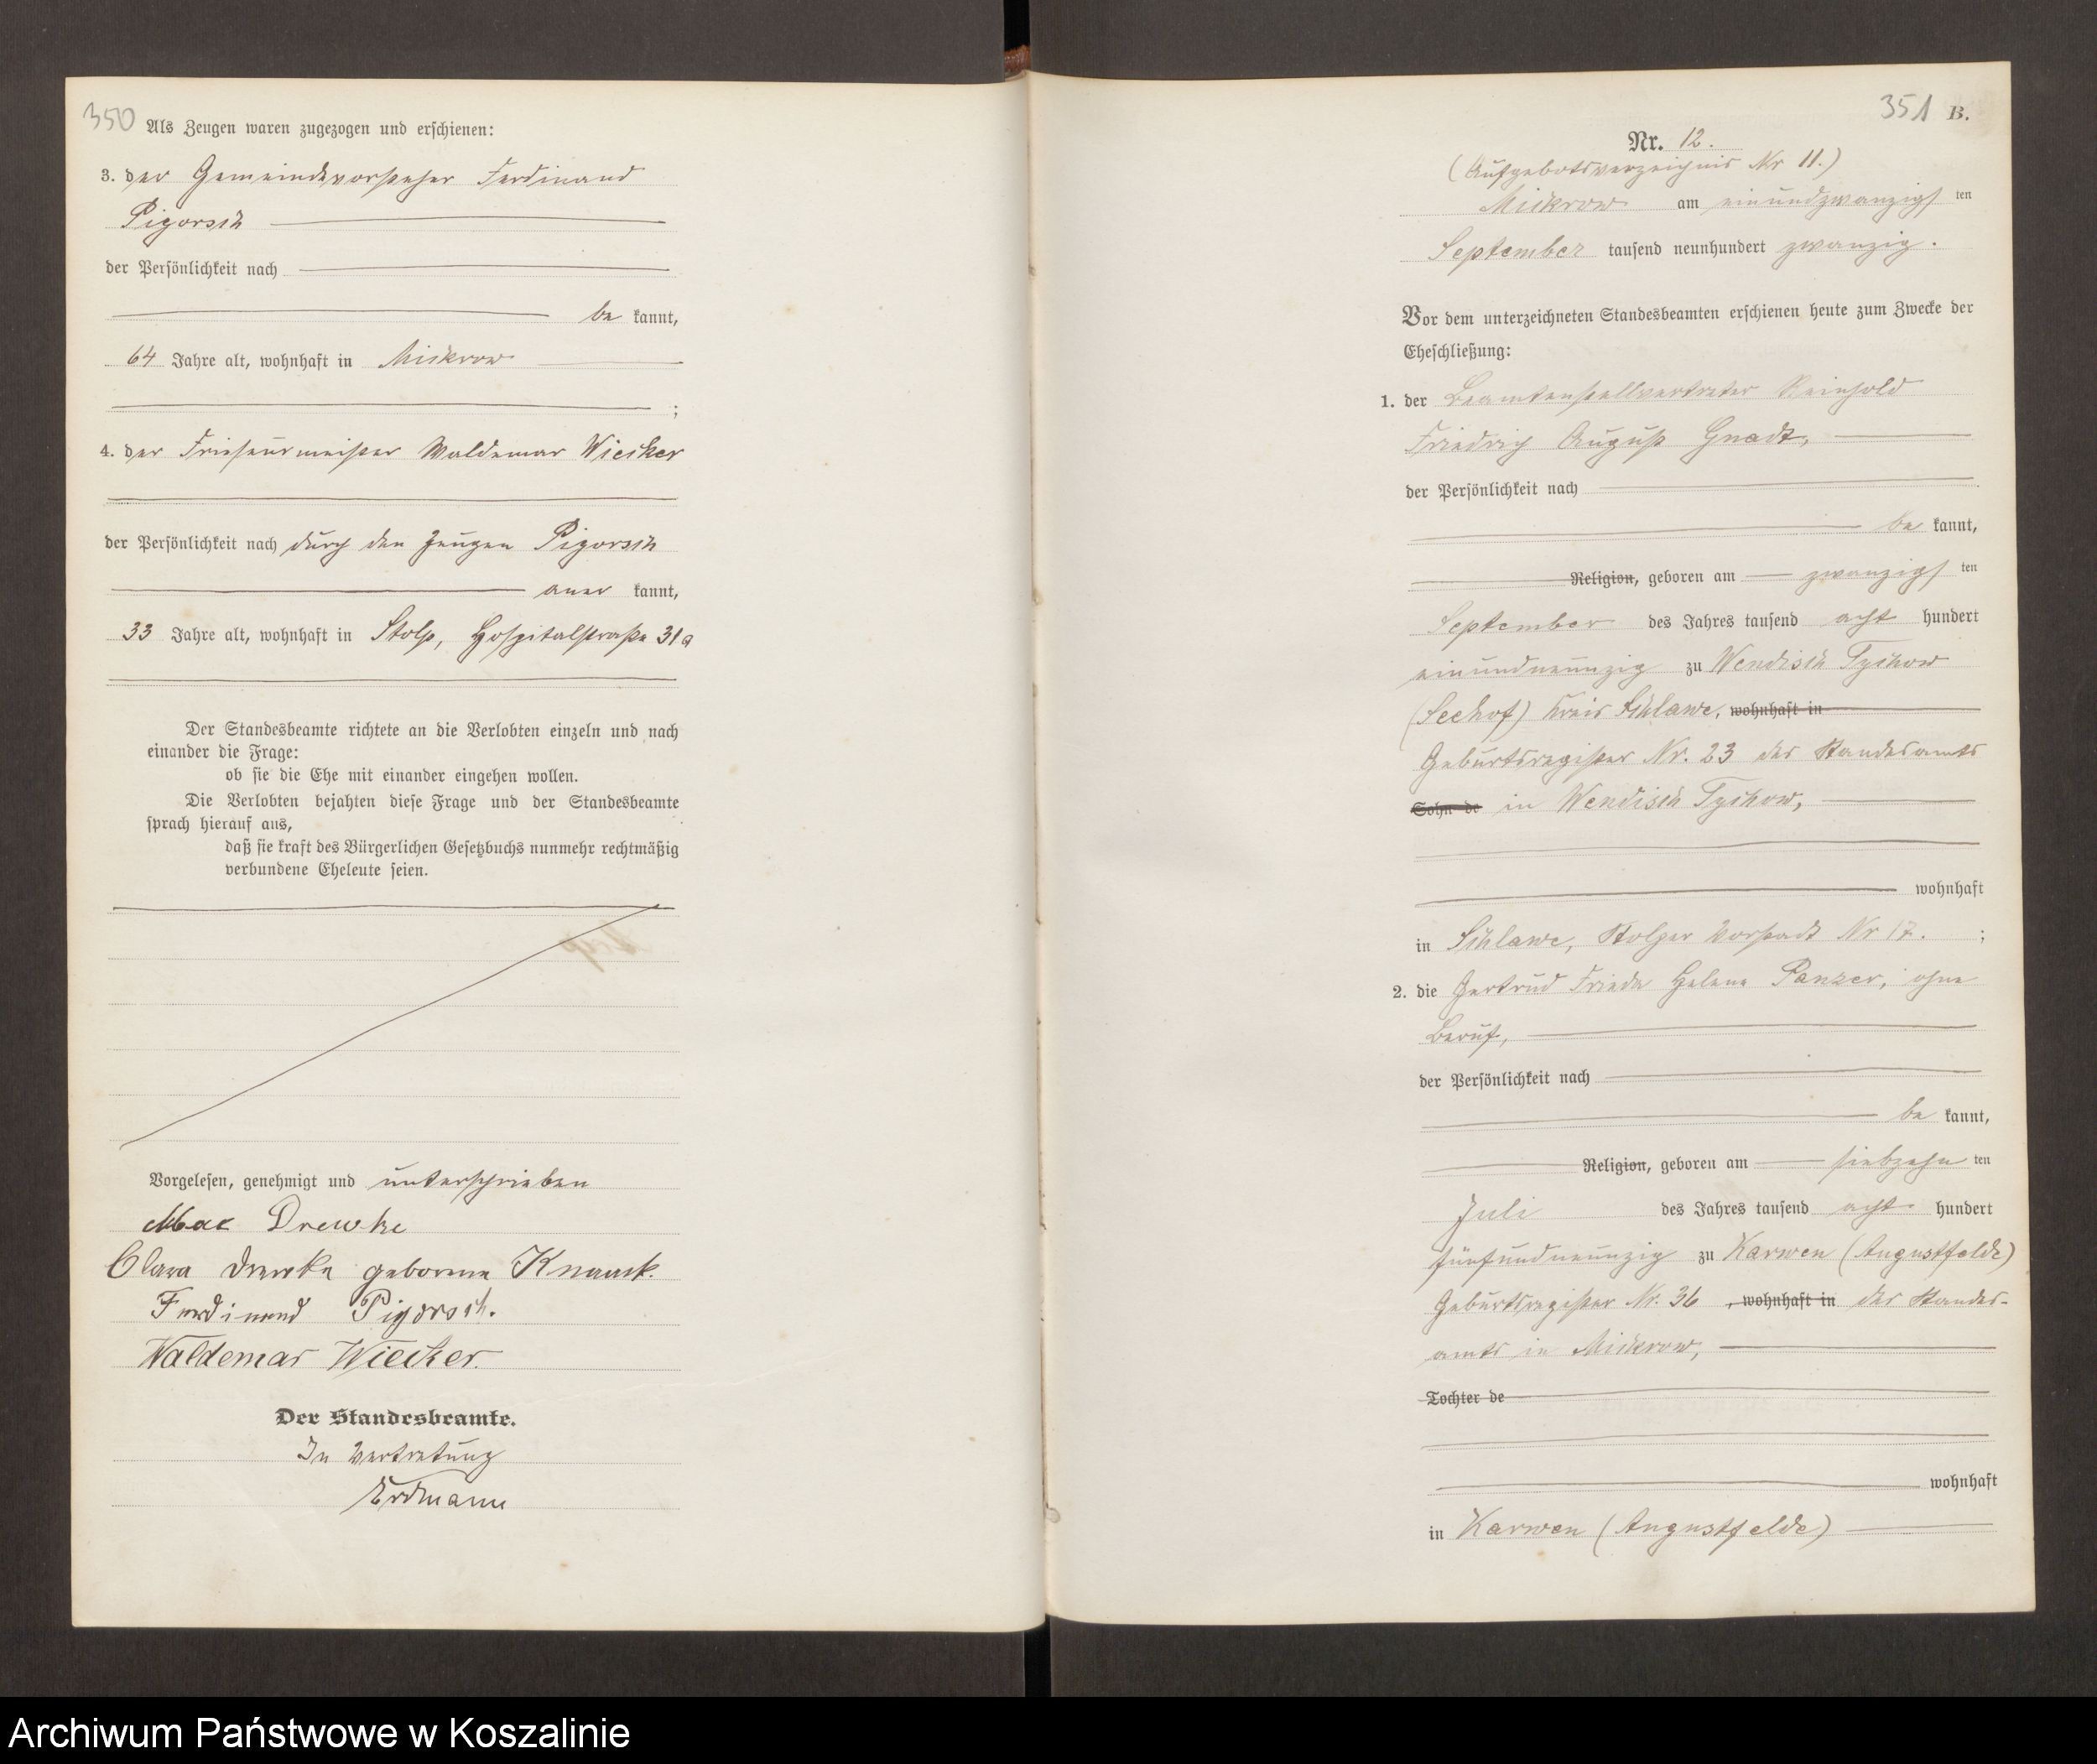 350
Als Zeugen waren zugezogen und erschienen:
3. der Gemeindevorsteher Ferdinand
Pigorsch
der Persönlichkeit nach
be kannt,
64 Jahre alt, wohnhaft in Mickrow
;
4. der Friseurmeister Waldemar Wiecker
der Persönlichkeit nach durch den Zeugen Pigorsch
aner kannt,
33 Jahre alt, wohnhaft in Stolp, Hospitalstraße 31a
Der Standesbeamte richtete an die Verlobten einzeln und nach
einander die Frage:
ob sie die Ehe mit einander eingehen wollen.
Die Verlobten bejahten diese Frage und der Standesbeamte
sprach hierauf aus,
daß sie kraft des Bürgerlichen Gesetzbuchs nunmehr rechtmäßig
verbundene Eheleute seien.
Vorgelesen, genehmigt und unterschrieben
Max Drewke
Clara Drewke geborene Knaack.
Ferdinand Pigorsch.
Waldemar Wiecker.
Der Standesbeamte.
In Vertretung
Erdmann
351 B.
Nr. 12.
(Aufgebotsverzeichnis Nr 11.)
Mickrow am einundzwanzigs ten
September tausend neunhundert zwanzig.
Vor dem unterzeichneten Standesbeamten erschienen heute zum Zwecke der
Eheschließung:
1. der Beamtenstellvertreter Reinhold
Friedrich August Gnadt,
der Persönlichkeit nach
be kannt,
Religion, geboren am zwanzigs ten
September des Jahres tausend acht hundert
einundneunzig zu Wendisch Tychow
(Seehof) Kreis Schlawe, wohnhaft in
Geburtsregister Nr. 23 des Standesamts
Sohn de in Wendisch Tychow,
wohnhaft
in Schlawe, Stolper Vorstadt Nr 17. ;
2. die Gertrud Frieda Helene Panzer, ohne
Beruf,
der Persönlichkeit nach
be kannt,
Religion, geboren am siebzehn ten
Juli des Jahres tausend acht hundert
fünfundneunzig zu Karwen (Augustfelde)
Geburtsregister Nr. 36 , wohnhaft in des Standes-
amts in Mickrow,
Tochter de
wohnhaft
in Karwen (Augustfelde)
Archiwum Państwowe w Koszalinie